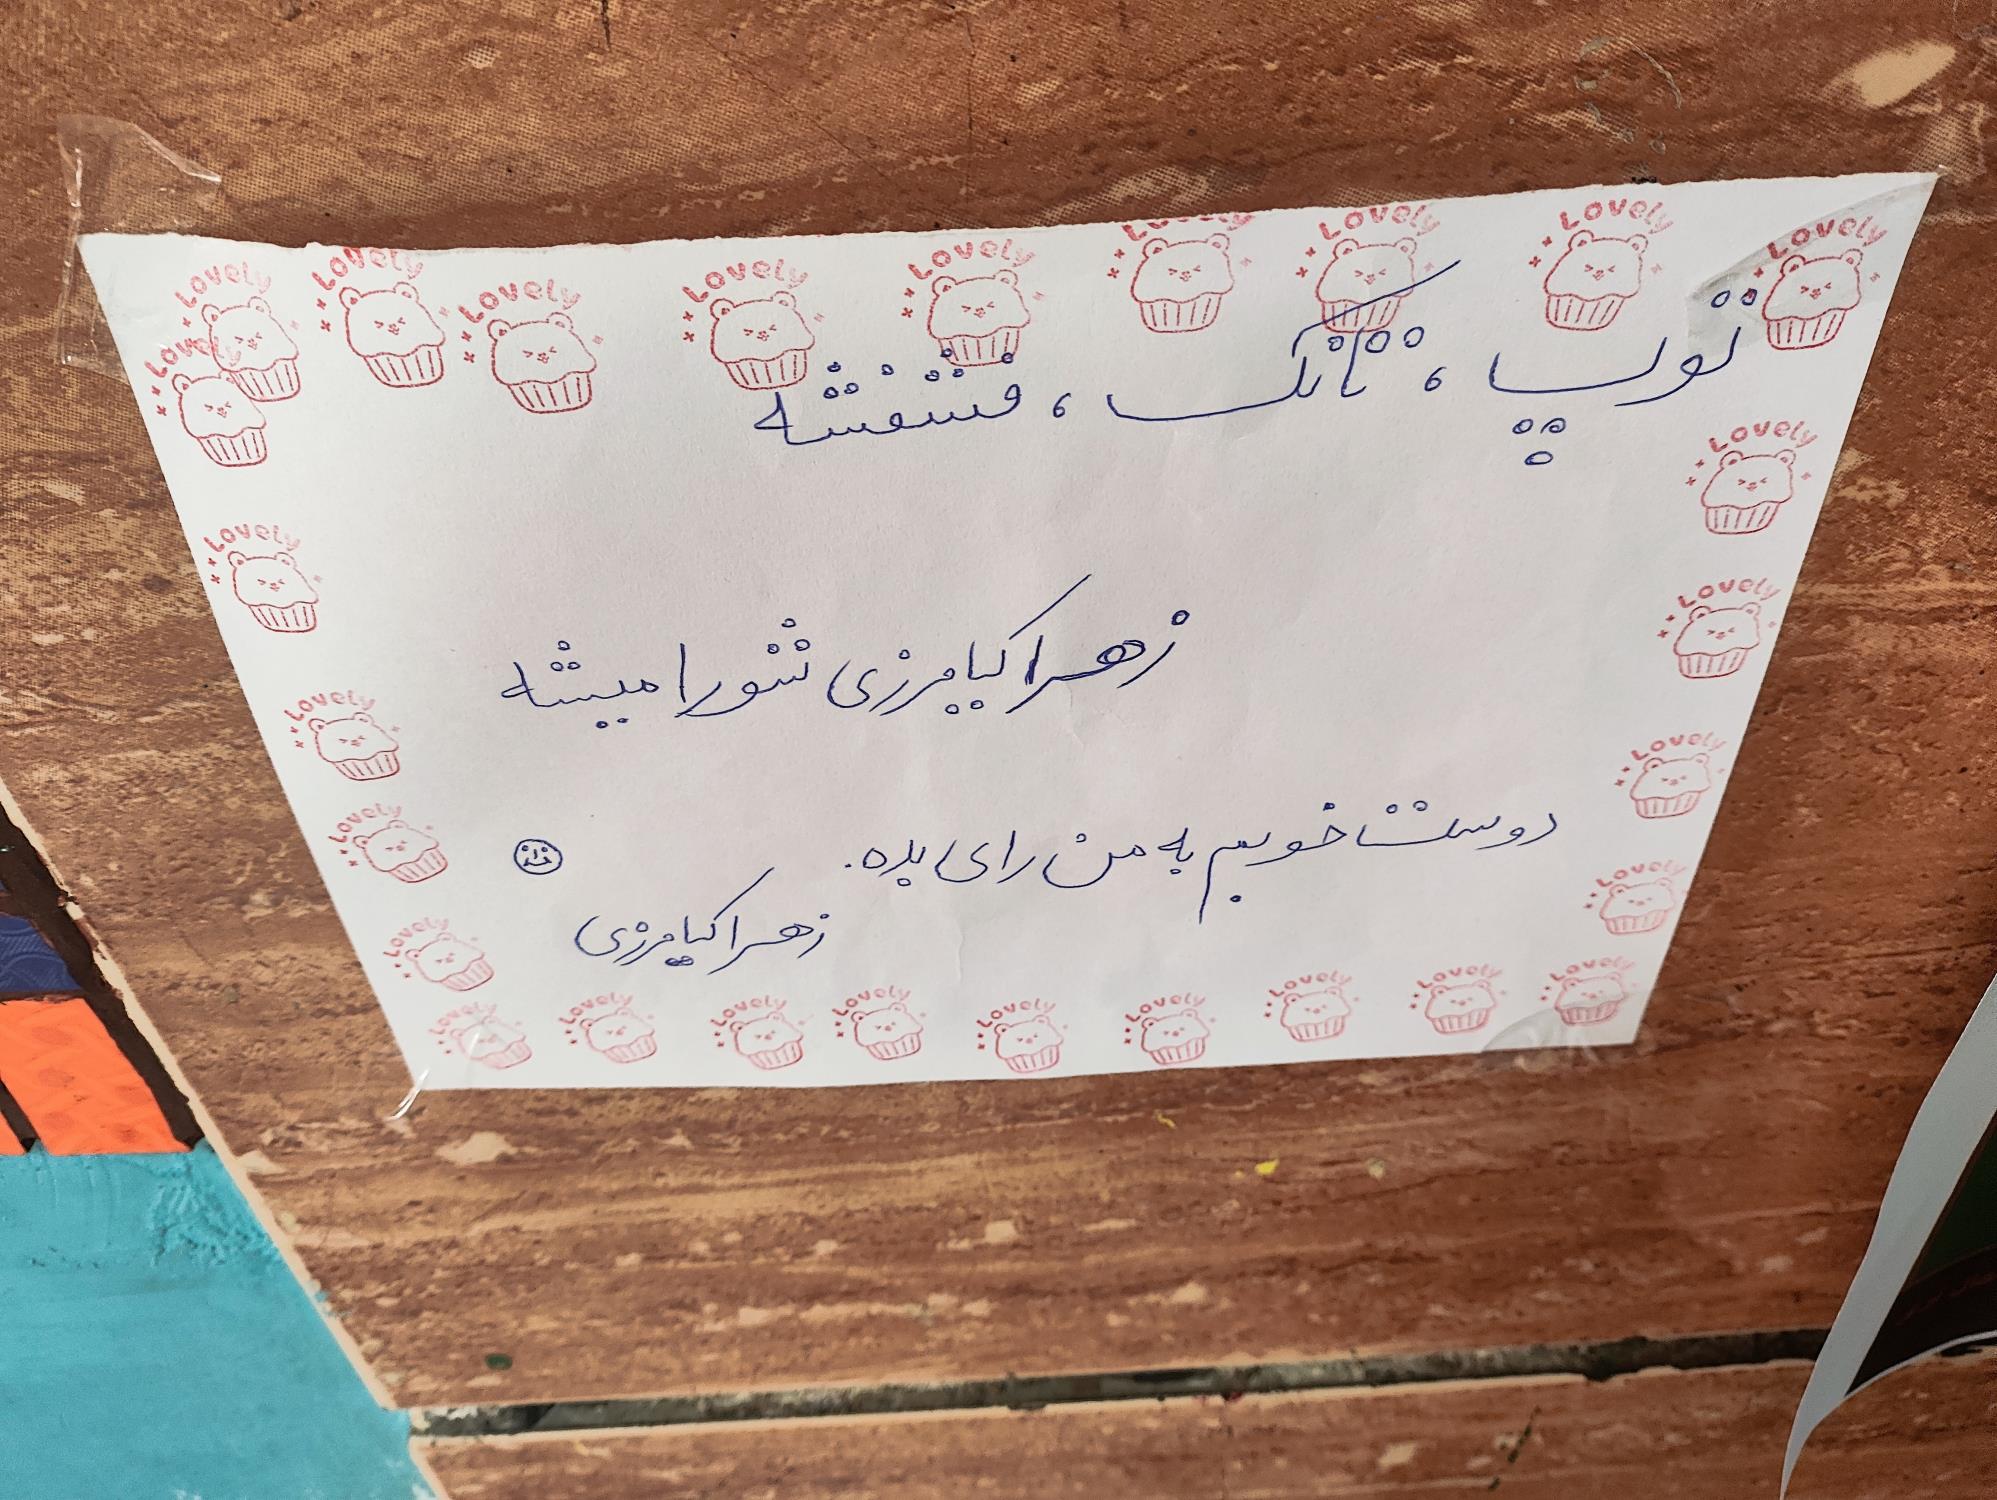 Lovely Lovely Lovely Lovely Lovely Lovely Lovely Lovely Lovely
Lovely
توپ ، تانک ، فشفشه
Lovely
Lovely
Lovely
زهرا کیامرزی شورا میشه
Lovely
Lovely
Lovely
دوست خوبم به من رای بده.
Lovely
زهرا کیامرزی
Lovely
Lovely Lovely Lovely Lovely Lovely Lovely Lovely Lovely Lovely